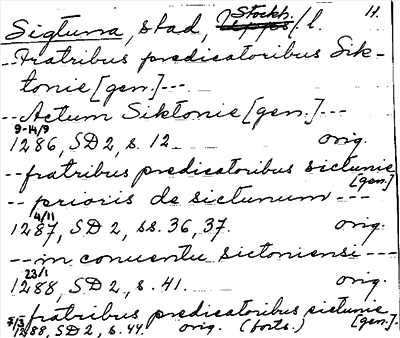 Sigtuna, stad, Stockh. l. H.
--Fratribus predicatoribus Sik-
tonie [gen.]---
--Actum Siktonie [gen.]---
9-14/9
1286, SD 2, s. 12 orig.
--fratribus predicatoribus sictunie
[gen.]
--prioris de sictunum---
4/11
1287, SD 2, ss. 36, 37. orig.
--in conuentu sictoniensi---
23/1
1288, SD 2, s. 41. orig.
--fratribus predicatoribus sictunie
5/3 1288, SD 2, s. 44. orig. (forts.) [gen.]